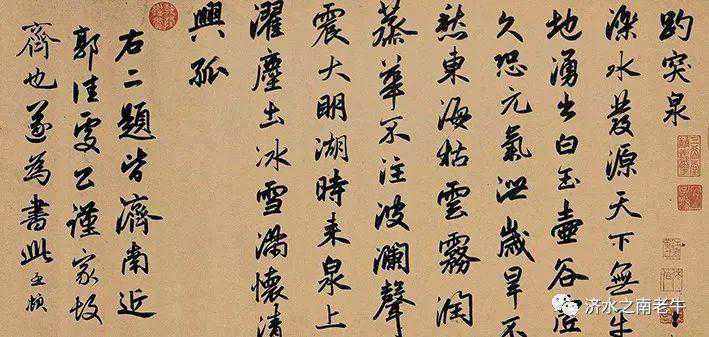 趵突泉
濼水發源天下無平
地湧出白玉壺谷虛
久恐元氣洩歲旱不
愁東海枯雲霧潤
蒸華不注波瀾聲
震大明湖時来泉上
濯塵土冰雪滿懷清
興孤
右二題皆濟南近
郭佳處公謹家故
齊也遂為書此孟頫
济水之南老牛